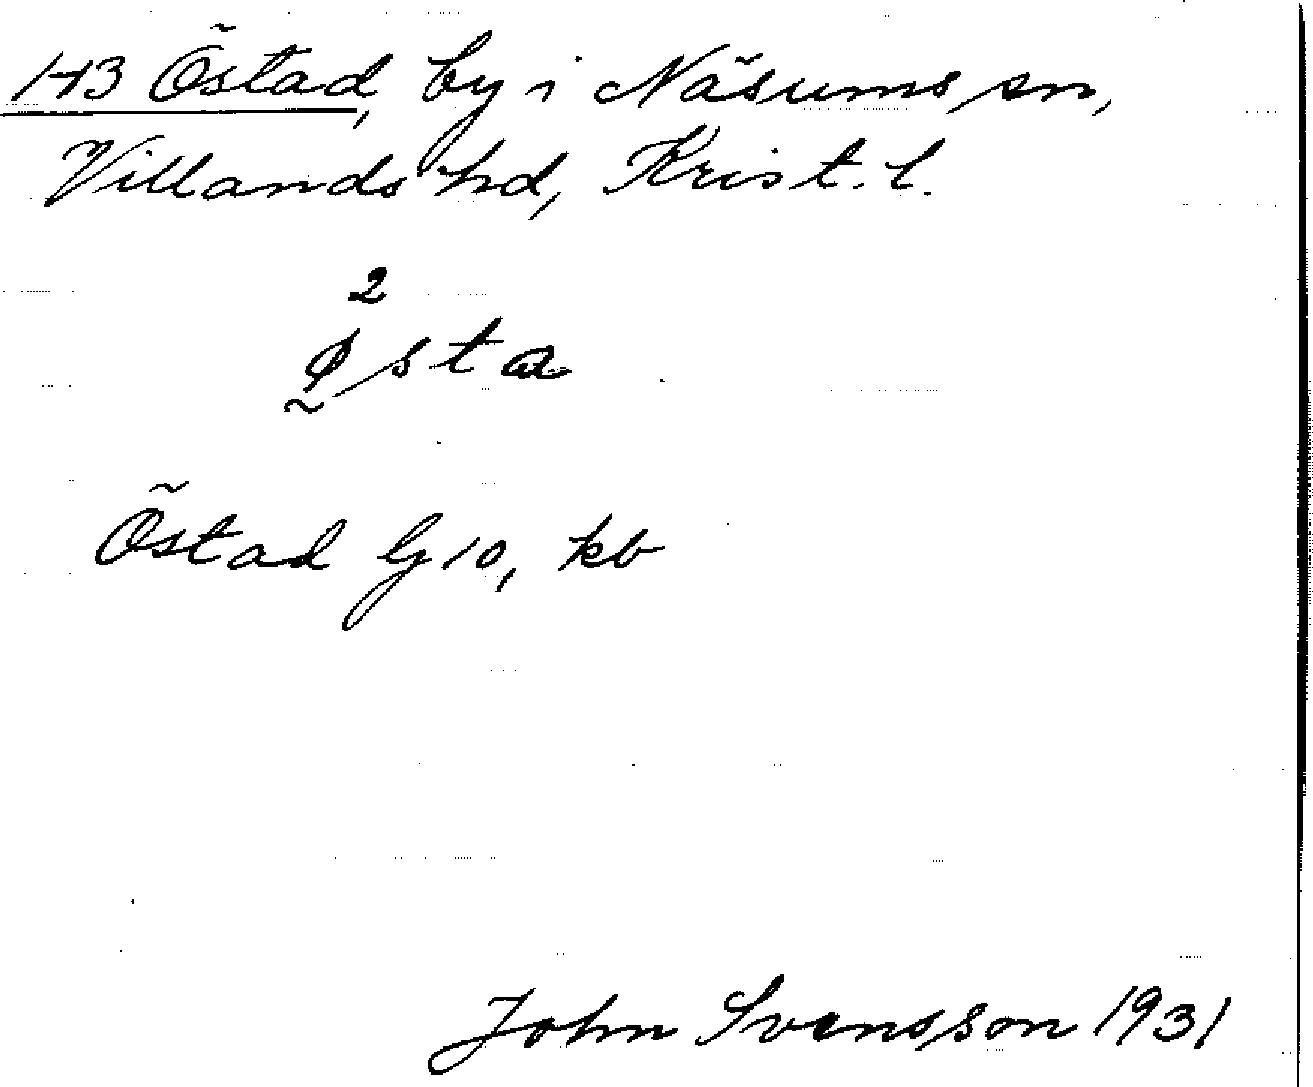 1-13 Östad, by i Näsums sn,
Villands hd, Krist. l.
2
østa
Östad G 10, kb
John Svensson 1931